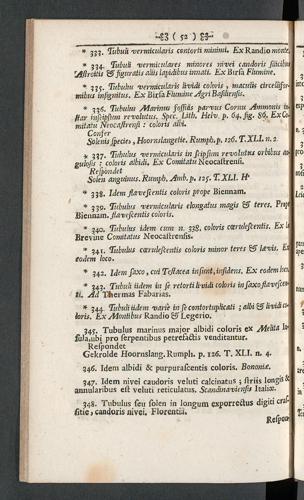 ( 52 )
* 333. Tubuli vermicularis contorti minimi. Ex Randio monte.
* 334. Tubuli vermiculares minores nivei candoris silicibus
Astroitis & figuratis aliis lapidibus innati. Ex Birsa Flumine.
* 335. Tubulus vermicularis lividi coloris, maculis circellifor-
mibus insignitus. Ex Birsa Flumine Agri Basileensis.
* 336. Tubulus Marinus fossilis parvus Cornu Ammonis in-
star in seipsum revolutus. Spec. Lith. Helv. p. 64. fig. 86. Ex Co-
mitatu Neocastrensi: coloris albi.
Confer
Solenis species, Hoornslangetie. Rumph. p. 126. T. XLI. n. 2
* 337. Tubulus vermicularis in seipsum revolutus orbibus an-
gulosis: coloris albidi, Ex Comitatu Neocastrensi.
Respondet
Solen anguinus. Rumph, Amb. p. 125. T. XLI. H
* 338. Idem flavescentis coloris prope Biennam.
* 339. Tubulus vermicularis elongatus magis & teres. Prope
Biennam. flavescentis coloris.
* 340. Tubulus idem cum n. 338. coloris cœrulescentis. Ex la
Brevine Comitatus Neocastrensis.
* 341. Tubulus cœrulescentis coloris minor teres & lævis. Ex
eodem loco.
* 342. Idem saxo, cui Testacea insunt, insidens. Ex eodem loco.
* 343. Tubuli iidem in se retorti lividi coloris in saxo flavescen-
ti. Ad Thermas Fabarias.
* 344. Tubuli iidem varie in se contortuplicati; albi & lividi co-
loris. Ex Montibus Randio & Legerio.
345. Tubulus marinus major albidi coloris ex Melita In-
sula, ubi pro serpentibus petrefactis venditantur.
Respondet
Gekrolde Hoornslang. Rumph. p. 126. T. XLI. n. 4.
346. Idem albidi & purpurascentis coloris. Bononiæ.
347. Idem nivei candoris veluti calcinatus; striis longis &
annularibus est veluti reticulatus. Scandinaviensis Italiæ.
348. Tubulus seu solen in longum exporrectus digiti cras-
sitie, candoris nivei. Florentiâ.
Respon-